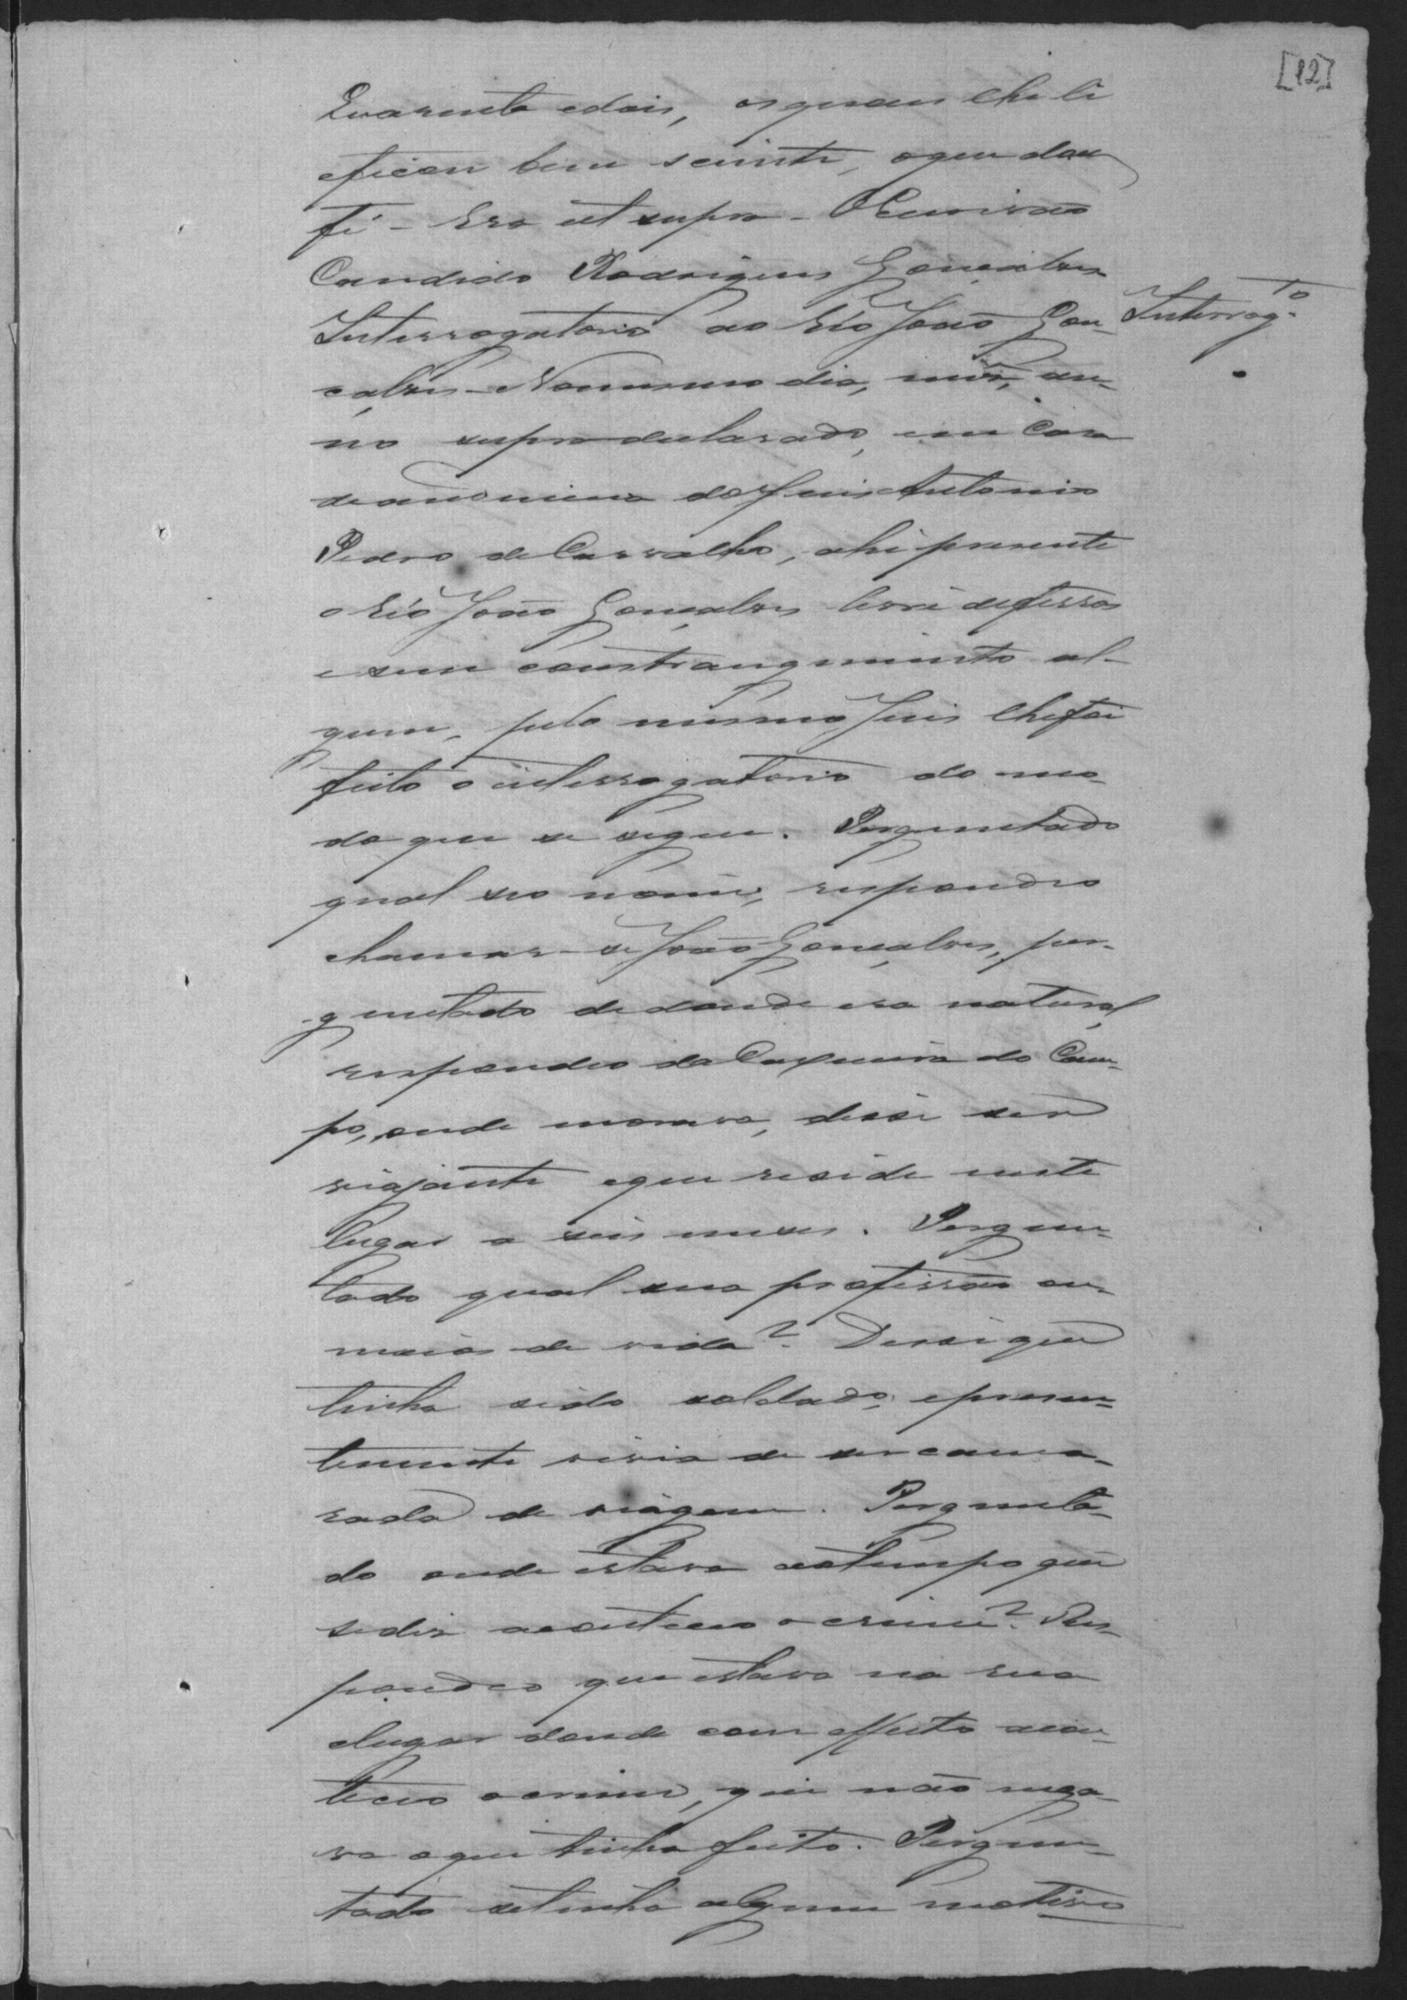 [12]
Quarenta edois, osquaes lhe li
eficou bem sciente, oque dou
fé - Era ut supra - O Escrivão
Candido Rodrigues Gonçalves
Interrogatorio ao Réo João Gon-
Interrog.to
çalves - Nomesmo dia, mês, an-
no supra declarado, em Casa
deaudiencia do Juis Antonio
Pedro de Carvalho, ahi presente
o Réo João Gonçalves livre deferros
e sem constrangimento al-
gum, pelo mesmo Juis lhe foi
feito o interrogatorio do mo-
do que se segue. Perguntado
qual seo nome, respondeo
chamar-se João Gonçalves, per-
guntado dedonde era natural,
respondeo da Caxueira do Cam-
po, onde morava, disse ser
viajante eque reside neste
lugar a seis meses. Pergun-
tado qual sua profissão ou
meios de vida? Disse que
tinha sido soldado, epresen-
temente vivia de ser cama-
rada de viagem. Pergunta-
do onde estava aotempo que
sedis aconteceo o crime? Res-
pondeo que estava na rua
elugar donde com effeito acon-
teceo o crime, que não nega-
va oque tinha feito. Pergun-
tado setinha algum motivo